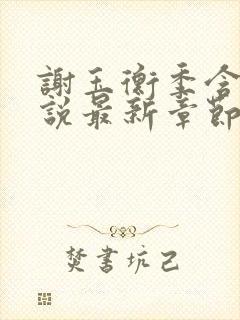 謝玉衡季含
說最新章節
焚書坑己